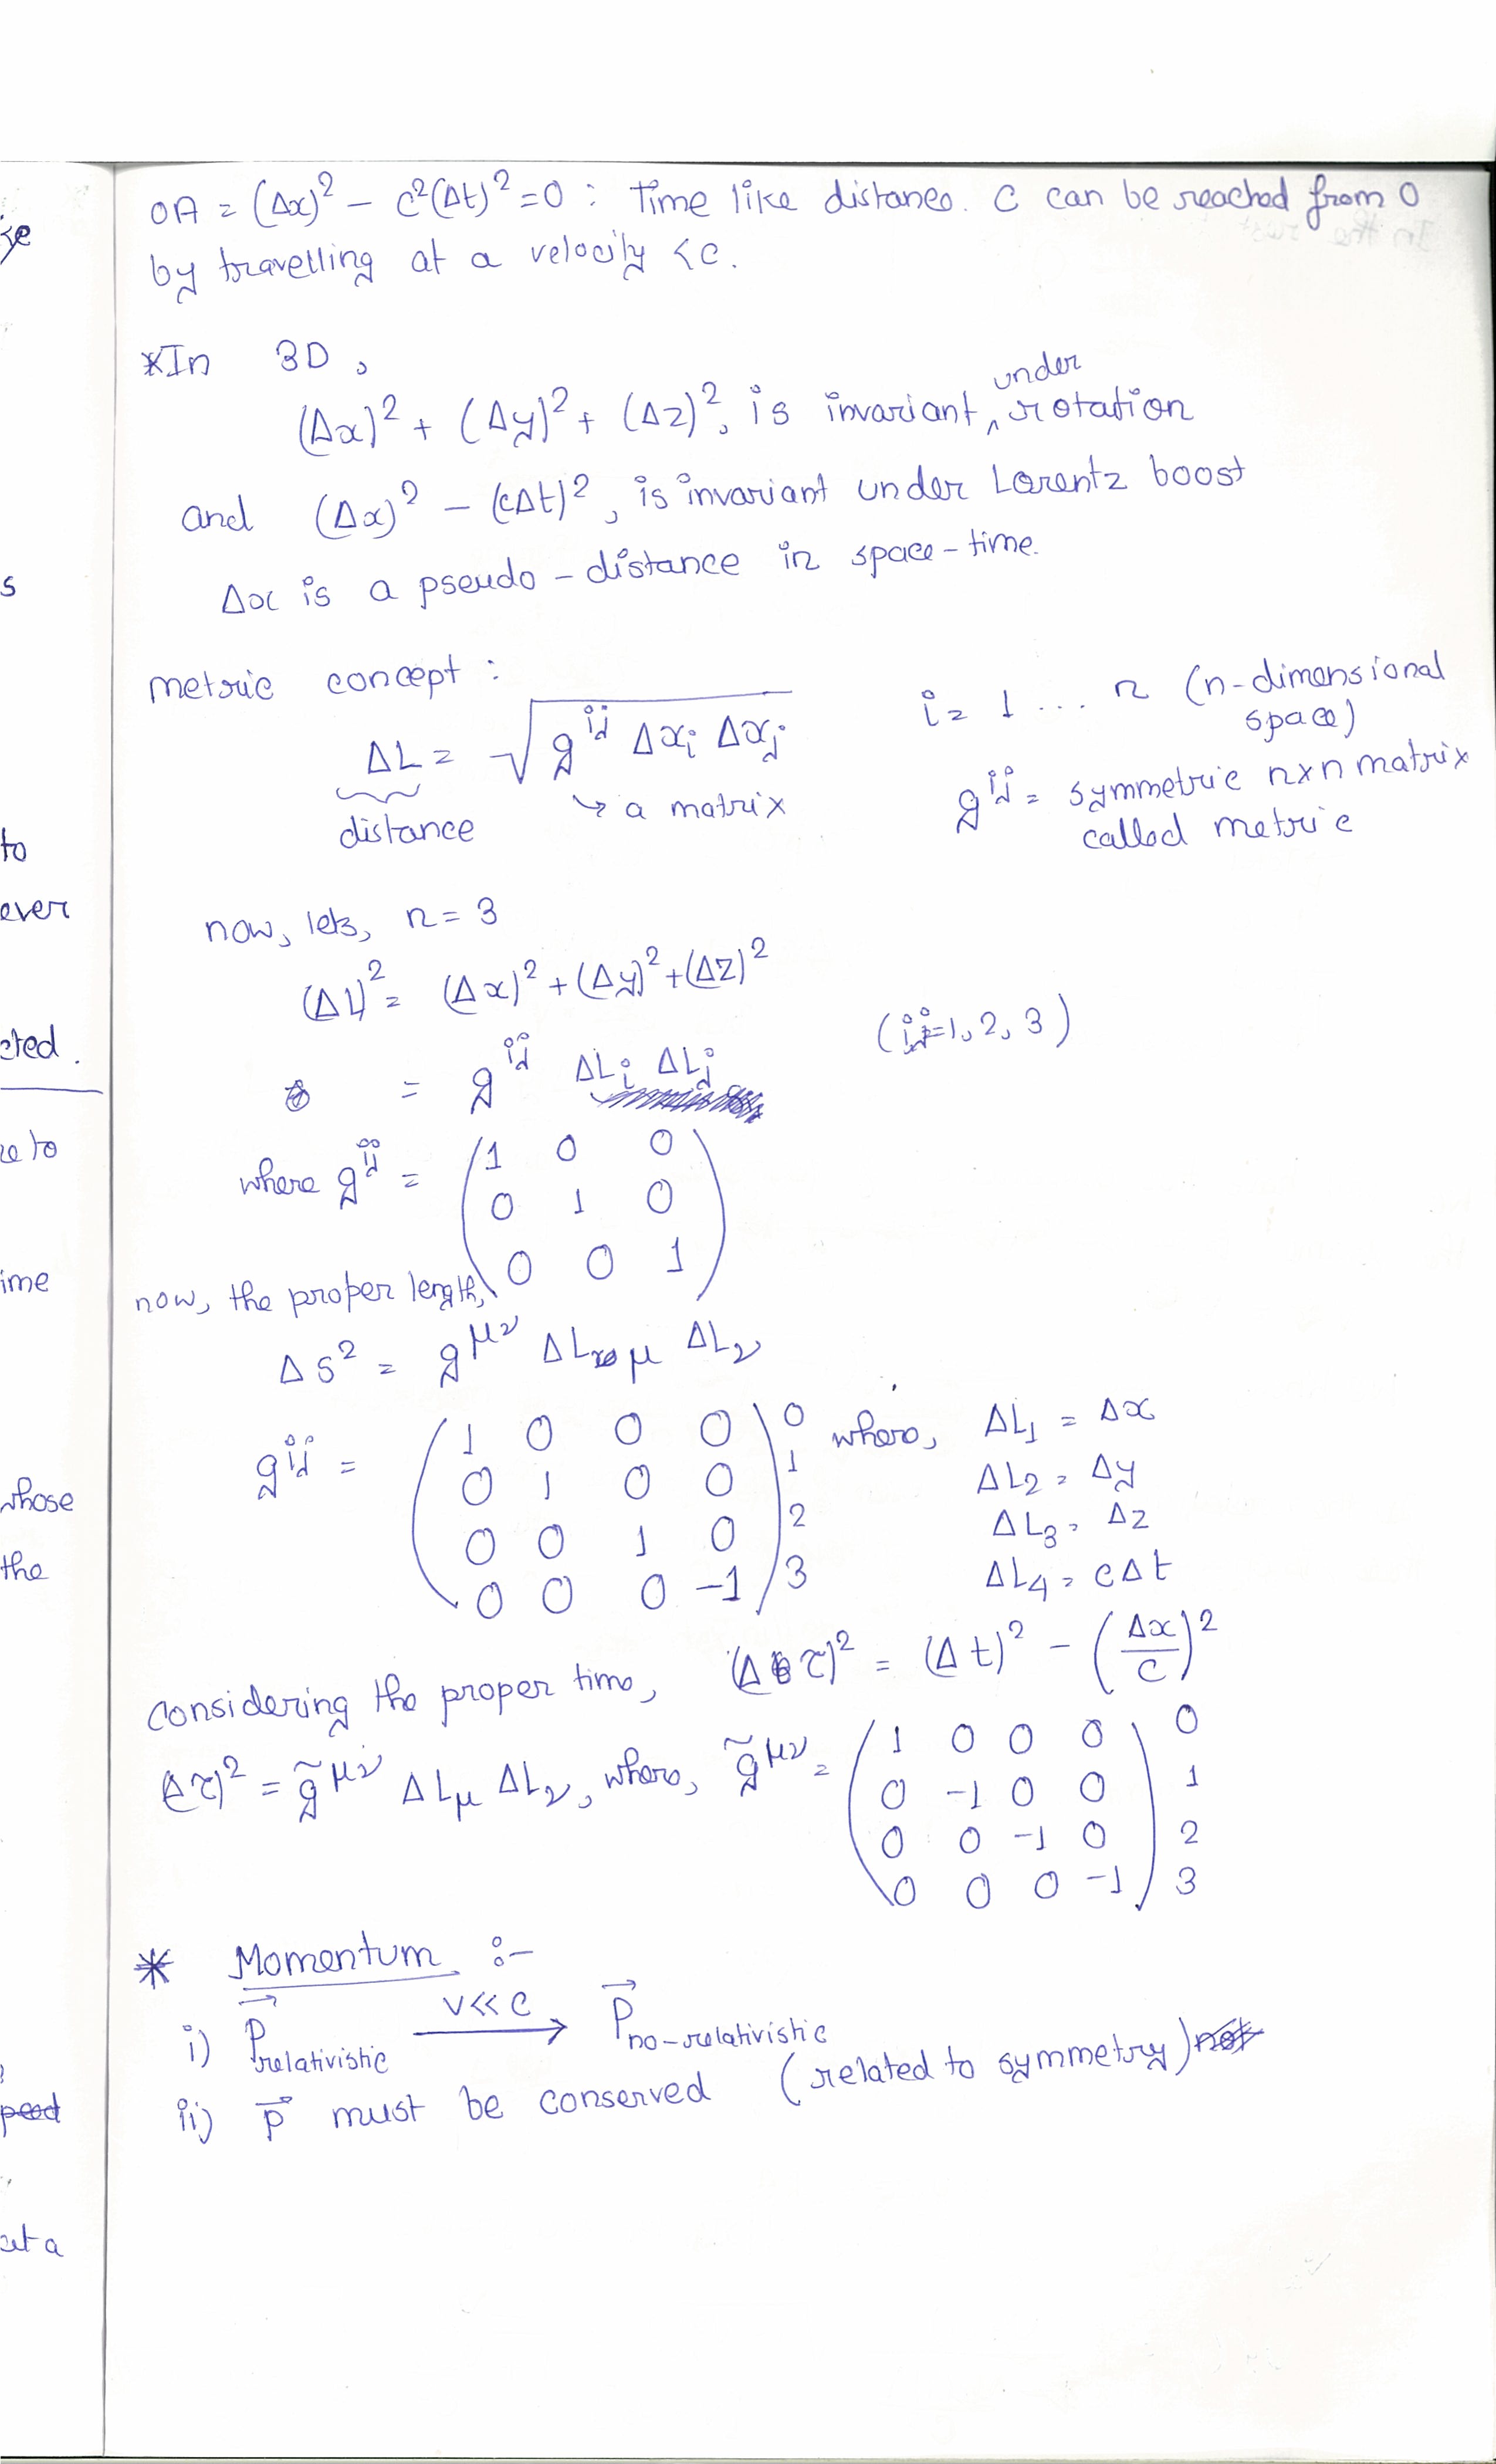 OA = (Δx)² - c²(Δt)² = 0 : Time like distance. C can be reached from O
by travelling at a velocity < c.
*In 3D,
(Δx)² + (Δy)² + (Δz)², is invariant under rotation
and (Δx)² - (cΔt)², is invariant under Lorentz boost
Δx is a pseudo-distance in space-time.
metric concept :
ΔL = √(g^{ij} Δx_i Δx_j)
i = 1 ... n (n-dimensional space)
distance
→ a matrix
g^{ij} = symmetric n×n matrix
called metric
now, lets, n = 3
(Δl)² = (Δx)² + (Δy)² + (Δz)²
= g^{ij} ΔL_i ΔL_j (i,j=1,2,3)
where g^{ij} = (1 0 0
0 1 0
0 0 1)
now, the proper length,
Δs² = g^{μν} ΔL_μ ΔL_ν
g^{ij} = (1 0 0 0) 0 where, ΔL₁ = Δx
0 1 0 0 1 ΔL₂ = Δy
0 0 1 0 2 ΔL₃ = Δz
0 0 0 -1 3 ΔL₄ = cΔt
considering the proper time, (Δτ)² = (Δt)² - (Δx/c)²
(Δτ)² = g̃^{μν} ΔL_μ ΔL_ν, where, g̃^{μν} = (1 0 0 0) 0
0 -1 0 0 1
0 0 -1 0 2
0 0 0 -1 3
* Momentum :-
i) P⃗ relativistic v<<c → P⃗ no-relativistic
ii) p⃗ must be conserved (related to symmetry) not
s
to
ever
cted.
ime
whose
the